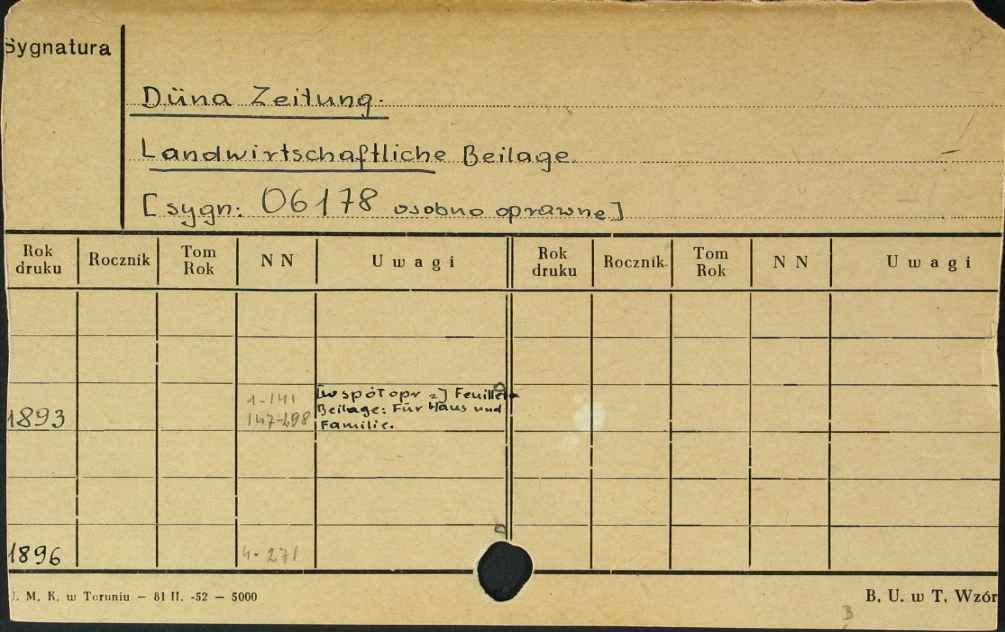 Sygnatura
Düna Zeitung.
Landwirtschaftliche Beilage.
[sygn: 06178 osobno oprawne]
Rok druku Rocznik Tom Rok NN Uwagi Rok druku Rocznik Tom Rok NN Uwagi
1893 1-141
147-298
[współopr z] Feuilleton
Beilage: Für Haus und
Familie.
1896 4-271
J. M. K. w Toruniu — 81 II. -52 — 5000
B. U. w T. Wzór
3